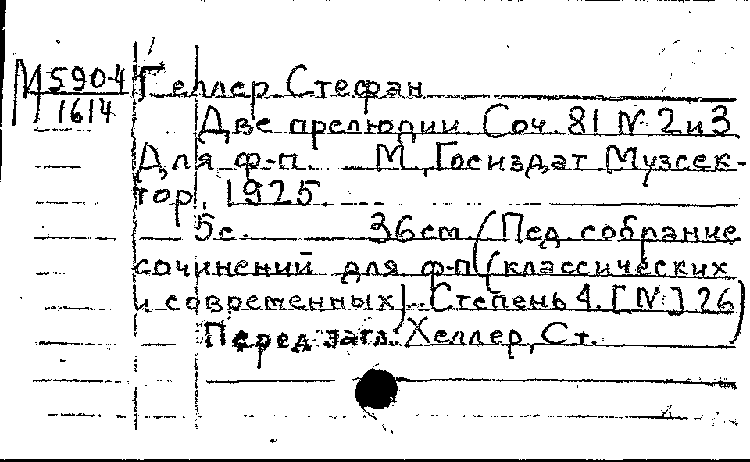 М 590-4 Геллер Стефан
1614
Две прелюдии Соч. 81 № 2 и 3
Для ф-п. М., Госиздат Музсек-
тор, 1925.
5с. 36см. (Пед. собрание
сочинений для ф-п (классических
и современных). Степень 4. [№] 26)
Перед загл.: Хеллер, Ст.